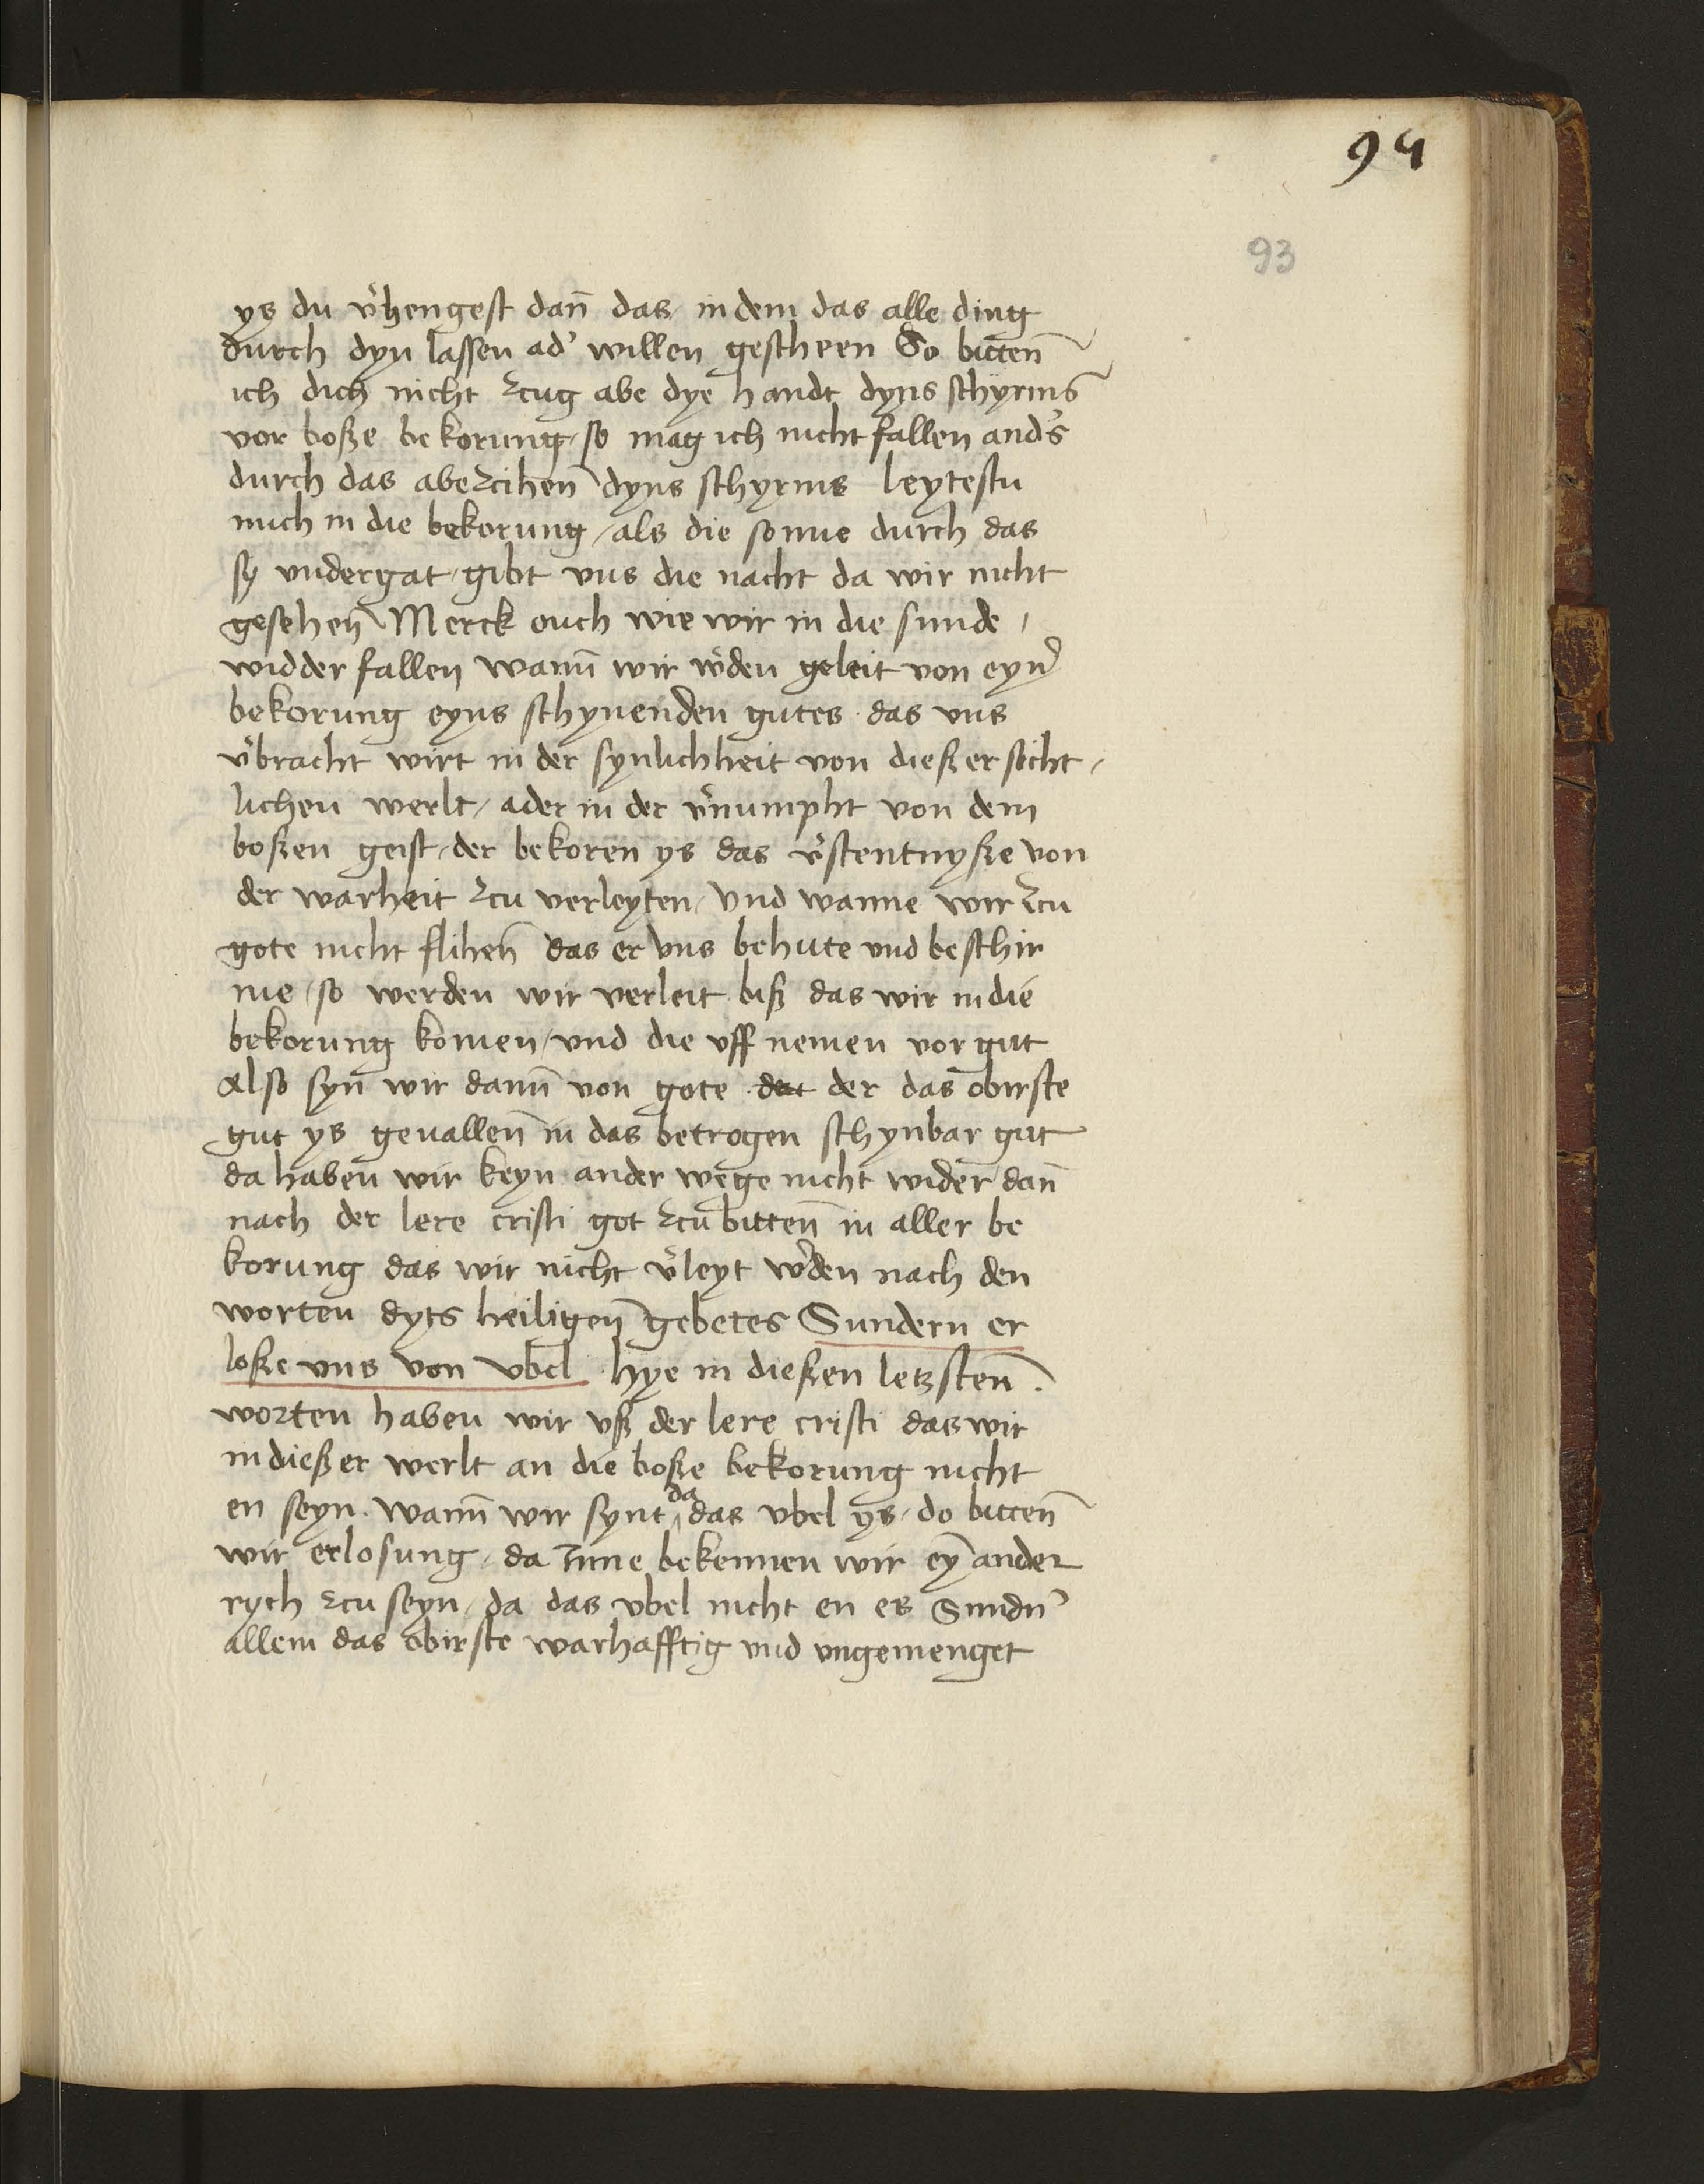 94
93
ys du v̉hengest dan̄ das / in dem das alle ding
durch dyn lassen ad̉ willen gescheen So bitten̄
ich dich nicht zcug abe dye handt dyns schyrms
vor boße bekorung / so mag ich nicht fallen and̉s
durch das abezcihen̄ dyns schyrms leytestu
mich in die bekorung / als die sonne durch das
sy vndergat / gibt vns die nacht da wir nicht
gesehen̄ Merck ouch wie wir in die sunde /
widder fallen wann̄ wir w̉den geleit von eyn̉
bekorung eyns schynenden gutes das vns
v̉bracht wirt in der synlichheit von dießer sicht /
lichen werlt / ader in der v̉numpht von dem
boßen geist / der bekoren ys das v̉stentnyße von
der warheit zcu verleyten / Vnd wanne wir zcu
gote nicht flihen̄ das er vns behute vnd beschir
me / so werden wir verleit biß das wir in die
bekorung komen / vnd die vff nemen vor gut
Also syn̄ wir dann̄ von gote dat der das obirste
gut ys geuallen̄ in das betrogen schynbar gut
da haben wir keyn ander wege nicht wider dan̄
nach der lere cristi got zcu bitten̄ in aller be
korung das wir nicht v̉leyt w̉den nach den
worten dyts heiligen̄ gebetes Sundern er
loße vns von vbel · hye in dießen letzsten̄ .
worten haben wir vß der lere cristi das wir
in dießer werlt an die boße bekorung nicht
en seyn . wann̄ wir synt da das vbel ys / do bitten̄
wir erlosung / da Inne bekennen wir eȳ ander
rych zcu seyn / da das vbel nicht en es Sundn̉
allein das obirste warhafftig vnd vngemenget